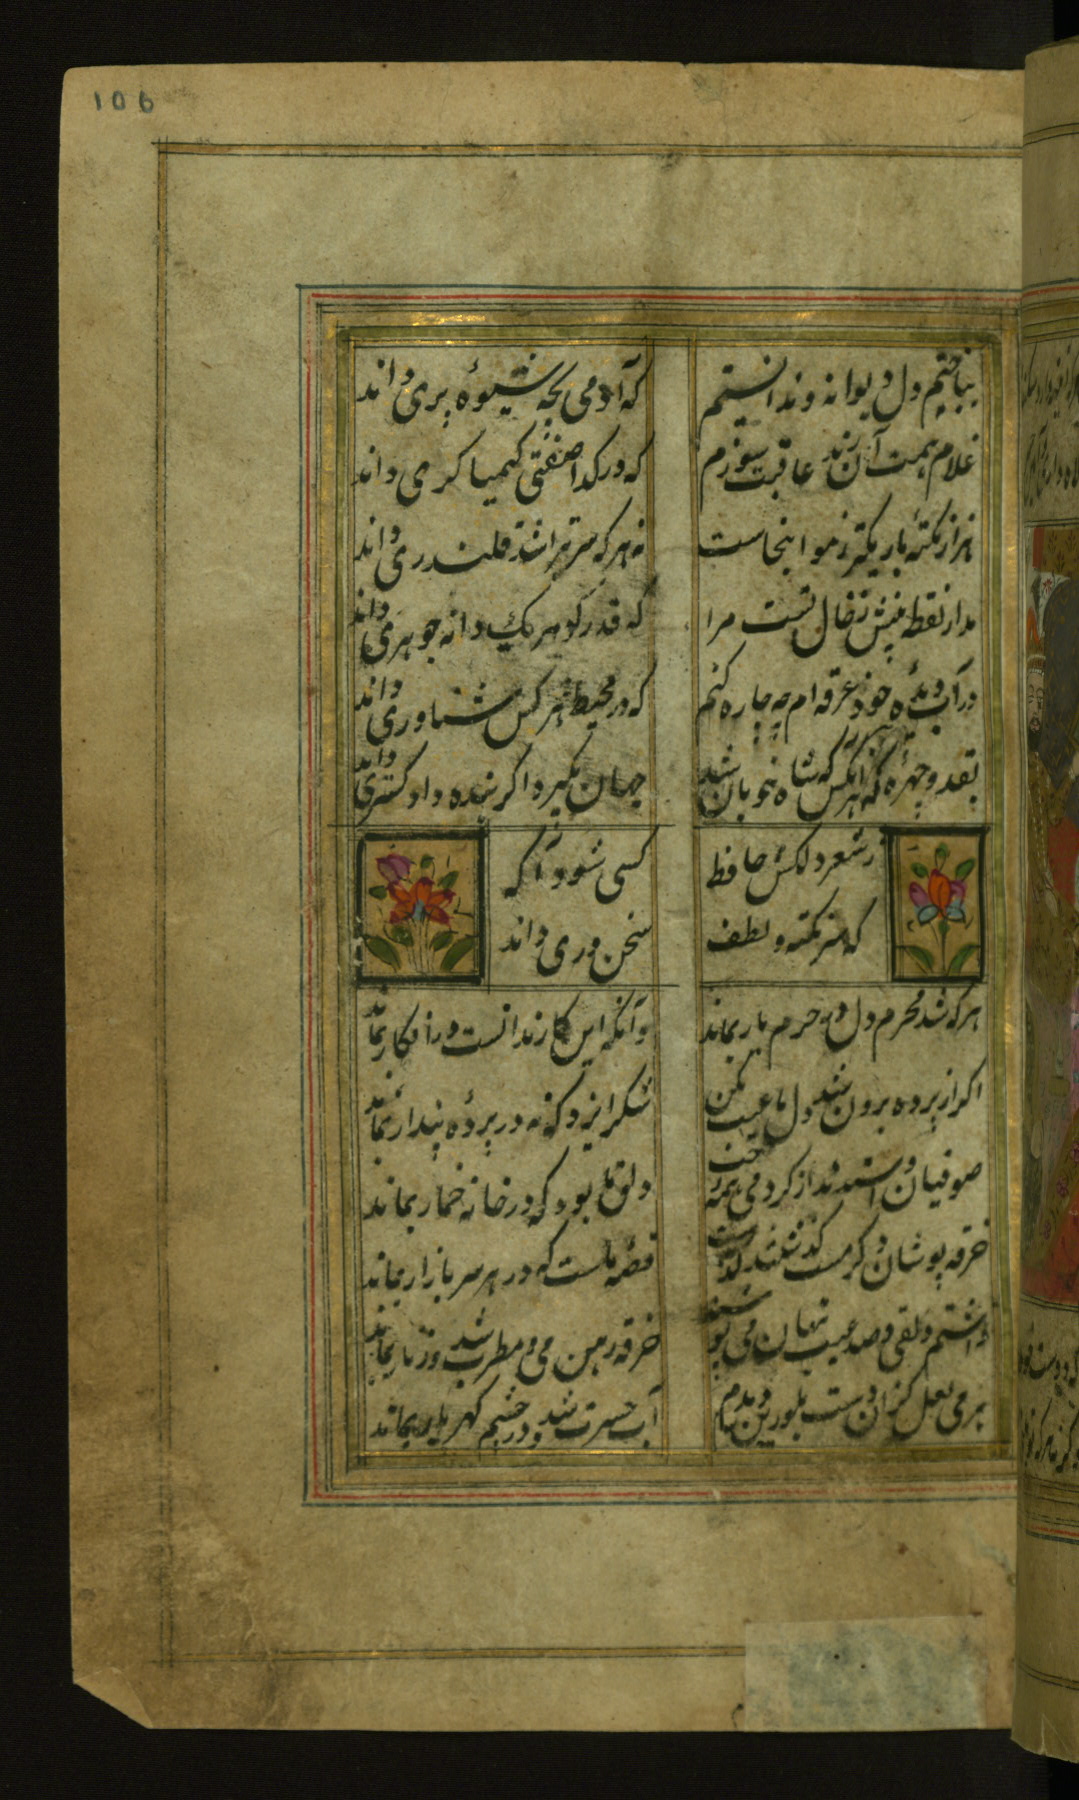 106
بباختم دل دیوانه و ندانستم
که آدمی بچه شیوهٔ پری داند
غلام همت آن رند عاقبت سوزم
که در کدا صفتی کیمیا کری داند
هزار نکتهٔ باریکتر ز مو اینجاست
نه هر که سر بتراشد قلندری داند
مدار نقطه بینش ز خال تست مرا
که قدر کوهر یک دانه جوهری داند
در آب دیدهٔ خود غرقه ام چه چاره کنم
که در محیط نه هر کس شناوری داند
بقد و چهره که هر آنکس که شاه خوبان شد
جهان بگیرد اگر بنده داد کستری داند
ز شعر دلکش حافظ
کسی شود آگه
که سر نکته و لطف
سخن وری داند
هر که شد محرم دل در حرم یار بماند
وآنکه این کار ندانست در افکار بماند
اگر از پرده برون شد دل ما عیب مکن
شکر ایزد که نه در پردهٔ پندار بماند
صوفیان واستدند از کرو می همه رخت
دلق ما بود که در خانه خمار بماند
خرقه پوشان کذشتند
قصه ماست که در هر سر بازار بماند
داشتم دلقی و صد عیب نهان می پوشید
خرقه رهن می و مطرب شد و زنار بماند
هر می لعل کزان دست بلورین دیدم
آب حسرت شد و در چشم کهر بار بماند